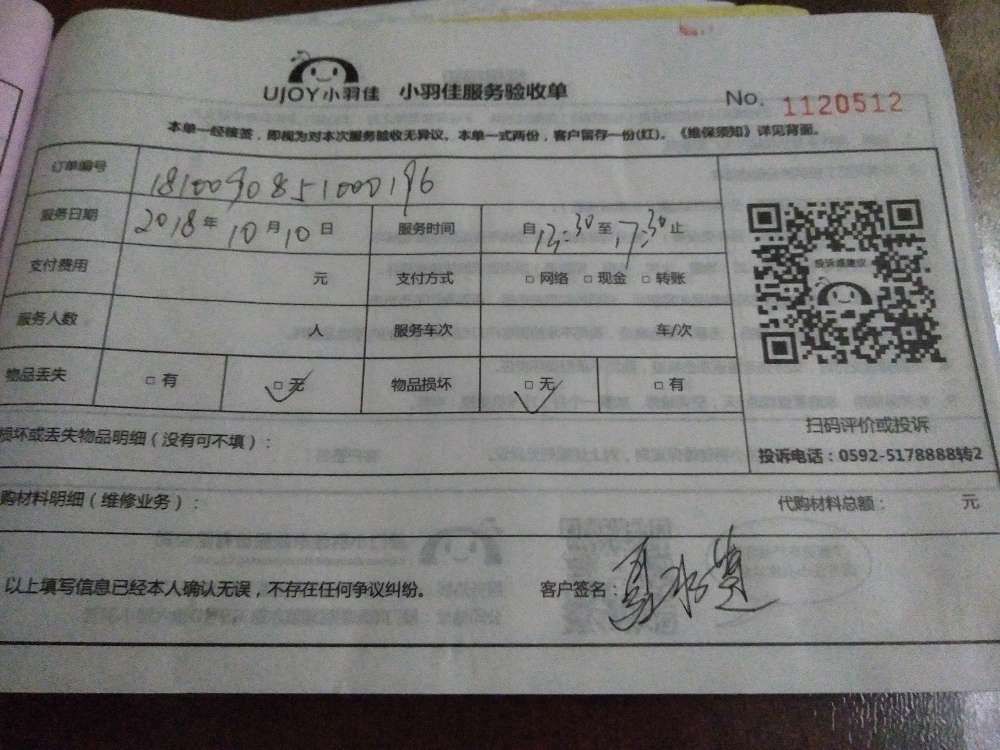 UJOY小羽佳 小羽佳服务验收单
No. 1120512
本单一经接签，即视为对本次服务验收无异议。本单一式两份，客户留存一份(红)。《维保须知》详见背面。
订单编号 1810090851000196
服务日期 2018年10月10日 服务时间 自13:30至17:30止
支付费用 元 支付方式 □网络 □现金 □转账
服务人数 人 服务车次 车/次
物品丢失 □有 □无 物品损坏 □无 □有
投诉或建议
扫码评价或投诉
投诉电话：0592-5178888转2
损坏或丢失物品明细（没有可不填）：
购材料明细（维修业务）： 代购材料总额： 元
以上填写信息已经本人确认无误，不存在任何争议纠纷。 客户签名：